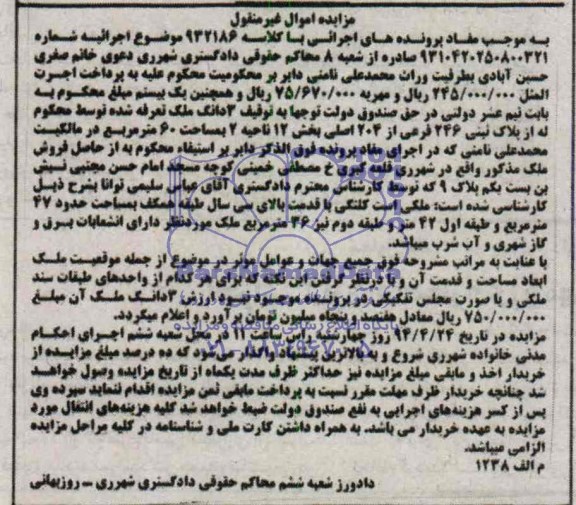 مزایده اموال غیرمنقول
به موجب مفاد پرونده های اجرائی با کلاسه ۹۳۲۱۸۶ موضوع اجرائیه شماره
۹۳۱۰۴۲۰۲۵۰۸۰۰۳۲۱ صادره از شعبه ۸ محاکم حقوقی دادگستری شهرری دعوی خانم صغری
حسین آبادی بطرفیت وراث محمدعلی نامنی دایر بر محکومیت محکوم علیه به پرداخت اجرت
المثل ۲۴۵/۰۰۰/۰۰۰ ریال و مهریه ۷۵/۶۷۰/۰۰۰ ریال و همچنین یک بیستم مبلغ محکوم به
بابت نیم عشر دولتی در حق صندوق دولت توجها به توقیف ۳دانگ ملک تعرفه شده توسط محکوم
له از پلاک ثبتی ۲۴۶ فرعی از ۲۰۴ اصلی بخش ۱۲ ناحیه ۲ بمساحت ۶۰ مترمربع در مالکیت
محمدعلی نامنی که در اجرای مفاد پرونده فوق الذکر دایر بر استیفاء محکوم به از حاصل فروش
ملک مذکور واقع در شهرری قلعه گبری خ مصطفی خمینی کوچه مسجد امام حسن مجتبی نبش
بن بست یکم پلاک ۹ که توسط کارشناس محترم دادگستری آقای عباس سلیمی توانا بشرح ذیل
کارشناسی شده است: ملکی است کلنگی با قدمت بالای سی سال طبقه همکف بمساحت حدود ۴۷
مترمربع و طبقه اول ۴۲ متر و طبقه دوم نیز ۳۶ مترمربع ملک موردنظر دارای انشعابات برق و
گاز شهری و آب شرب میباشد.
با عنایت به مراتب مشروحه فوق جمیع جهات و عوامل موثر در موضوع از جمله موقعیت ملک
ابعاد مساحت و قدمت آن و با درنظر گرفتن این نکته که برای هر کدام از واحدهای طبقات سند
ملکی و یا صورت مجلس تفکیکی در پرونده موجود نبود ارزش ۳دانگ ملک آن مبلغ
۷۵۰/۰۰۰/۰۰۰ ریال معادل هفتصد و پنجاه میلیون تومان برآورد و اعلام میگردد.
مزایده در تاریخ ۹۴/۴/۲۴ روز چهارشنبه راس ساعت ۱۱ در محل شعبه ششم اجرای احکام
مدنی خانواده شهرری شروع و به بالاترین پیشنهاد واگذار می شود که ده درصد مبلغ مزایده از
خریدار اخذ و مابقی مبلغ مزایده نیز حداکثر ظرف مدت یکماه از تاریخ مزایده وصول خواهد
شد چنانچه خریدار ظرف مهلت مقرر نسبت به پرداخت مابقی ثمن مزایده اقدام ننماید سپرده وی
پس از کسر هزینه‌های اجرایی به نفع صندوق دولت ضبط خواهد شد کلیه هزینه‌های انتقال مورد
مزایده به عهده خریدار می باشد. به همراه داشتن کارت ملی و شناسنامه در کلیه مراحل مزایده
الزامی میباشد.
م الف ۱۲۳۸
دادورز شعبه ششم محاکم حقوقی دادگستری شهرری ـ روزبهانی
ParsNamadData
پایگاه اطلاع رسانی مناقصه و مزایده